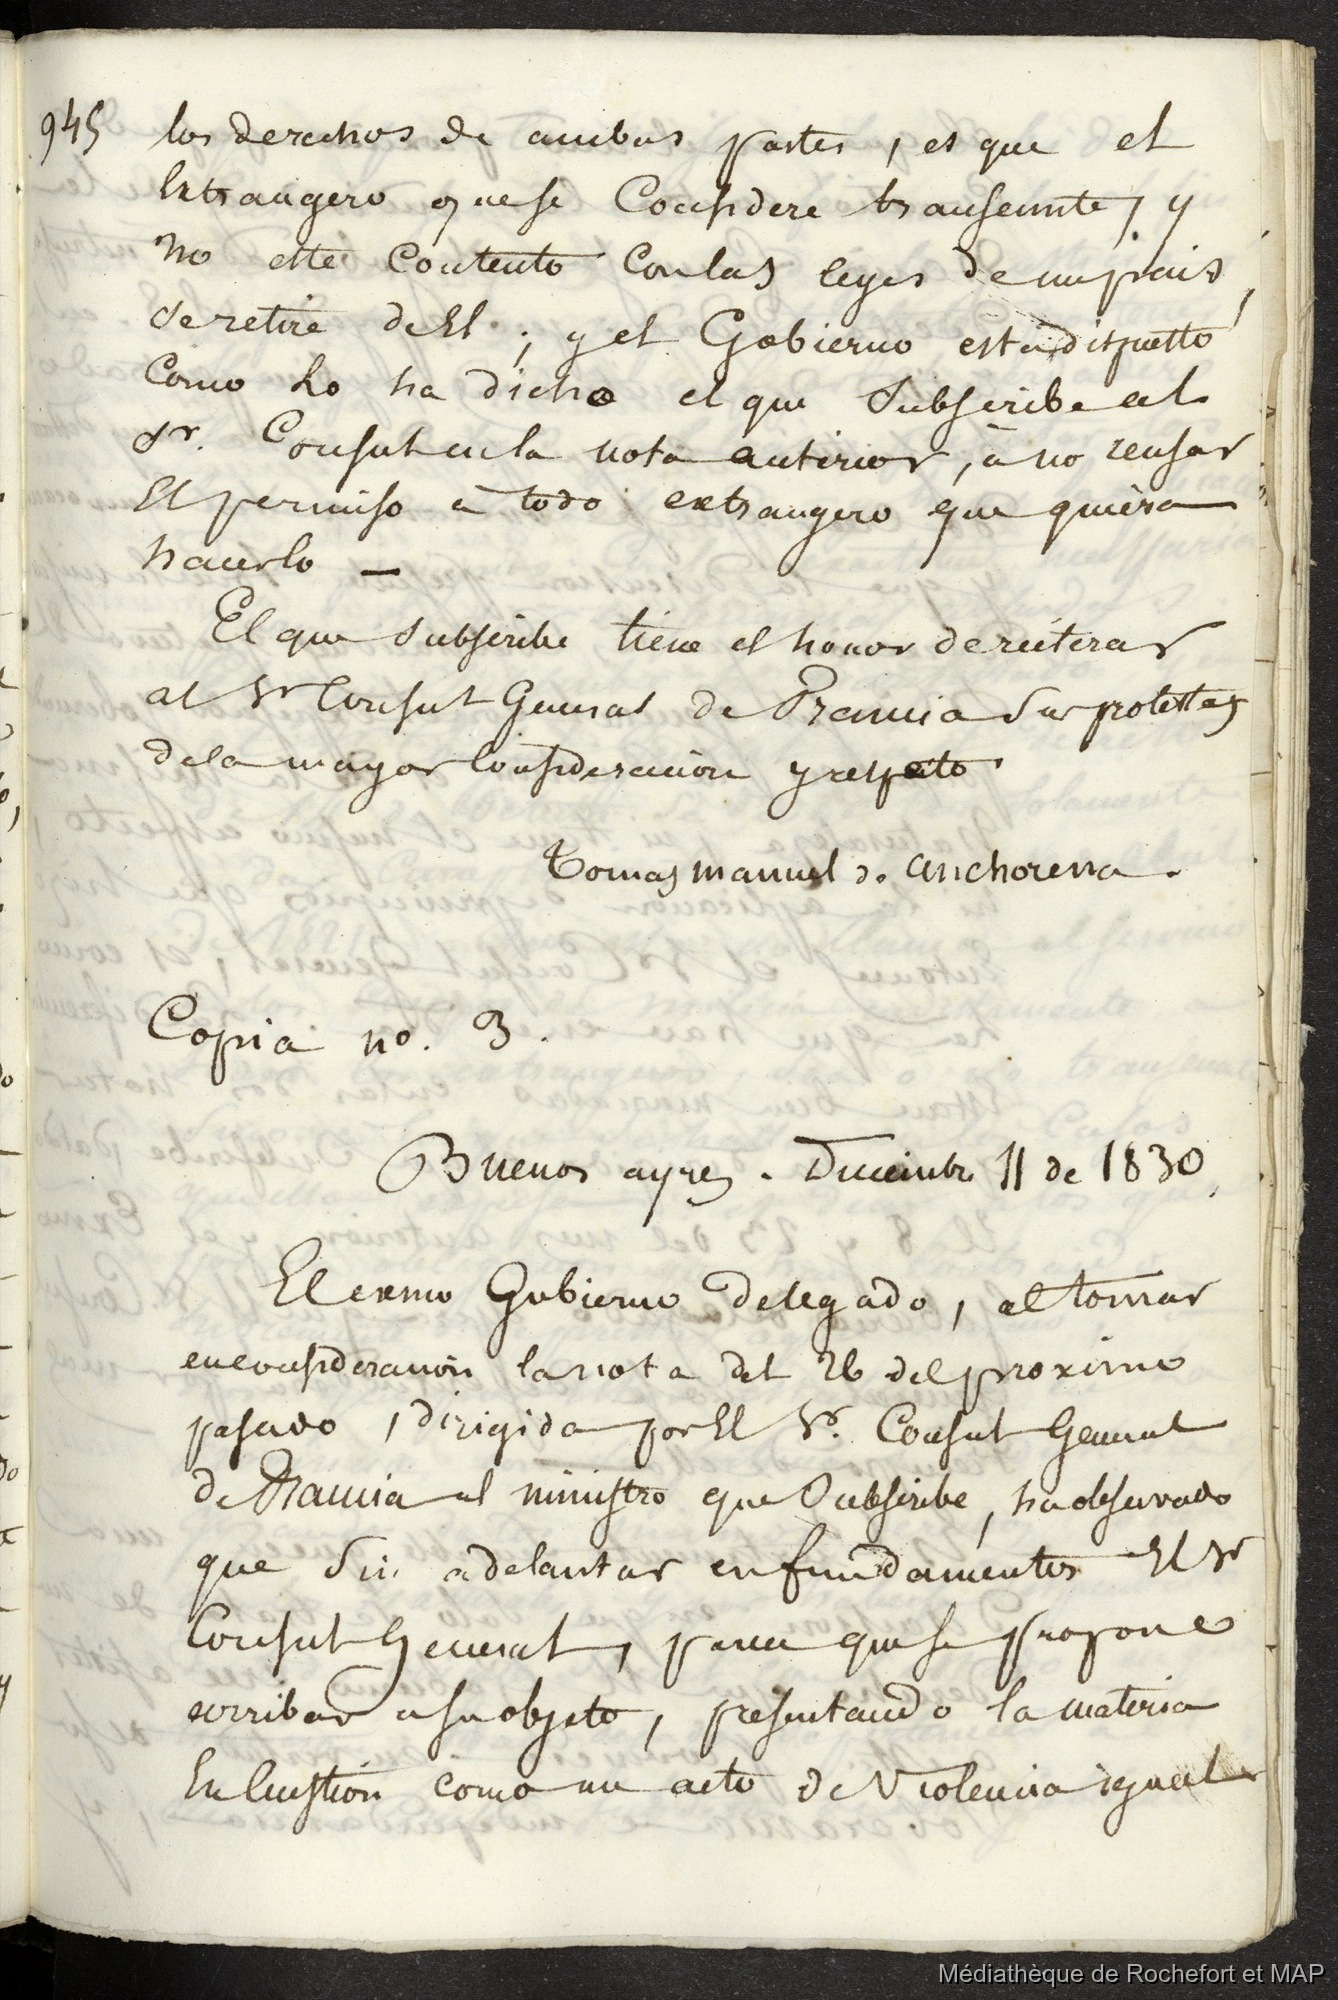 945
los derechos de ambas partes, es que el
Extrangero que se Considere transeunte, y
no esté Contento con las leyes de un pais,
se retire de El; y el Gobierno está dispuesto
Como Lo ha dicho el que Subscribe al
Sr. Consul en la nota anterior, à no reusar
El permiso à todo extrangero que quiera
hacerlo —
El que Subscribe tiene el honor de reiterar
al Sr Consul General de Francia Sus protestas
de la mayor Consideracion y respeto
Tomas manuel de anchorena.
Copia no. 3.
Buenos ayres. Diciembre 11 de 1830.
El exmo Gobierno delegado, al tomar
en consideracion la nota del 26 del proximo
pasado, dirigida por El Sr. Consul General
de Francia al ministro que Subscribe, ha observado
que Sin adelantar en fundamentos El Sr
Consul General, parece que se propone
arribar a su objeto, presentando la materia
En Cuestion como un acto de Violencia igual
Médiathèque de Rochefort et MAP